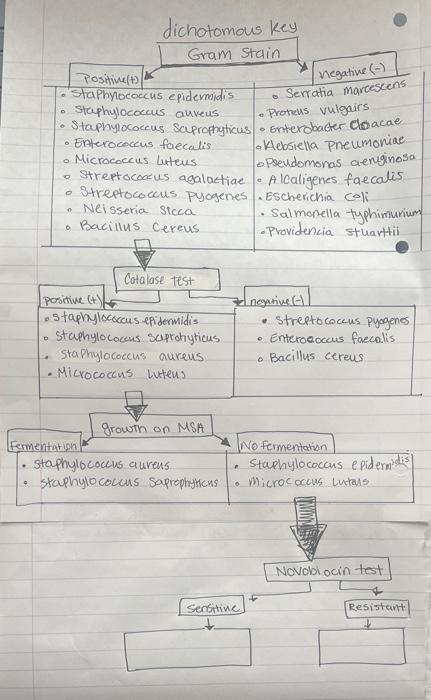 dichotomous key
Gram Stain
Positive(+)
negative(-)
Staphylococcus epidermidis
Staphylococcus aureus
Staphylococcus Saprophyticus
Enterococcus faecalis
Micrococcus luteus
Streptococcus agalactiae
Streptococcus Pyogenes
Neisseria Sicca
Bacillus Cereus
Serratia marcescens
Proteus vulgairs
Enterobacter Cloacae
Klebsiella pneumoniae
Pseudomonas aeruginosa
Alcaligenes faecalis
Escherichia coli
Salmonella typhimurium
Providencia Stuartii
Catalase test
positive (+)
negative(-)
Staphylococcus epidermidis
Staphylococcus Saprohyticus
Staphylococcus aureus
Micrococcus luteus
Streptococcus pyogenes
Enterococcus faecalis
Bacillus cereus
growth on MSA
Fermentation
No fermentation
Staphylococcus aureus
Staphylococcus Saprophyticus
Staphylococcus epidermidis
Micrococcus Luteus
Novobiocin test
Sensitive
Resistant